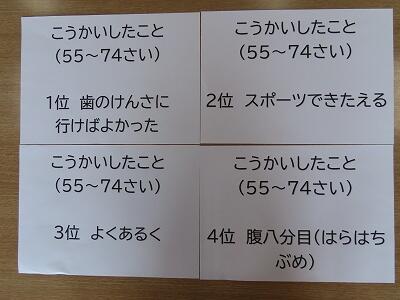 こうかいしたこと
(55～74さい)
1位 歯のけんさに
行けばよかった
こうかいしたこと
(55～74さい)
2位 スポーツできたえる
こうかいしたこと
(55～74さい)
3位 よくあるく
こうかいしたこと
(55～74さい)
4位 腹八分目(はらはち
ぶめ)